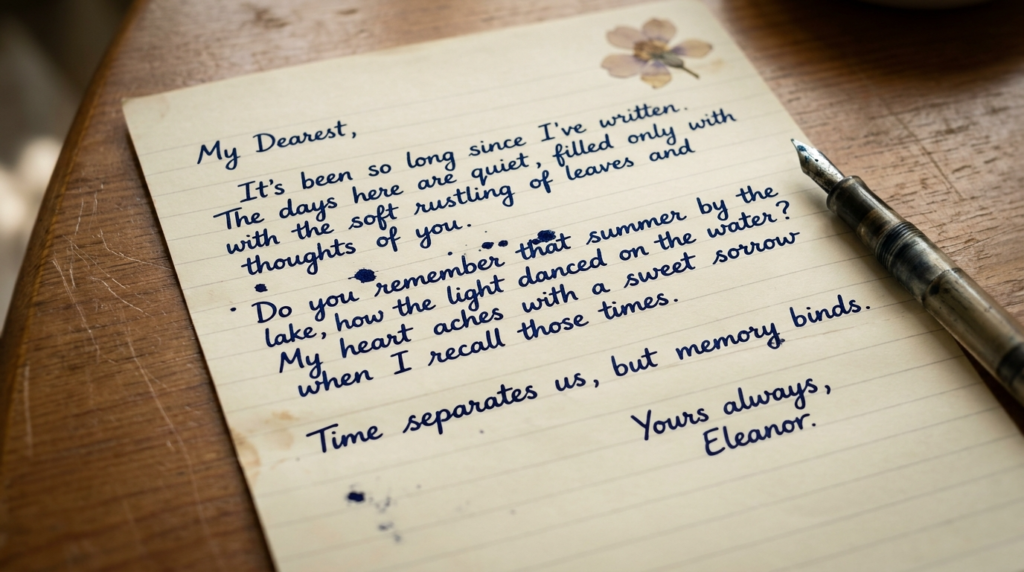 My Dearest,
It's been so long since I've written.
The days here are quiet, filled only with
with the soft rustling of leaves and
thoughts of you.
Do you remember that summer by the
lake, how the light danced on the water?
My heart aches with a sweet sorrow
when I recall those times.
Time separates us, but memory binds.
Yours always,
Eleanor.